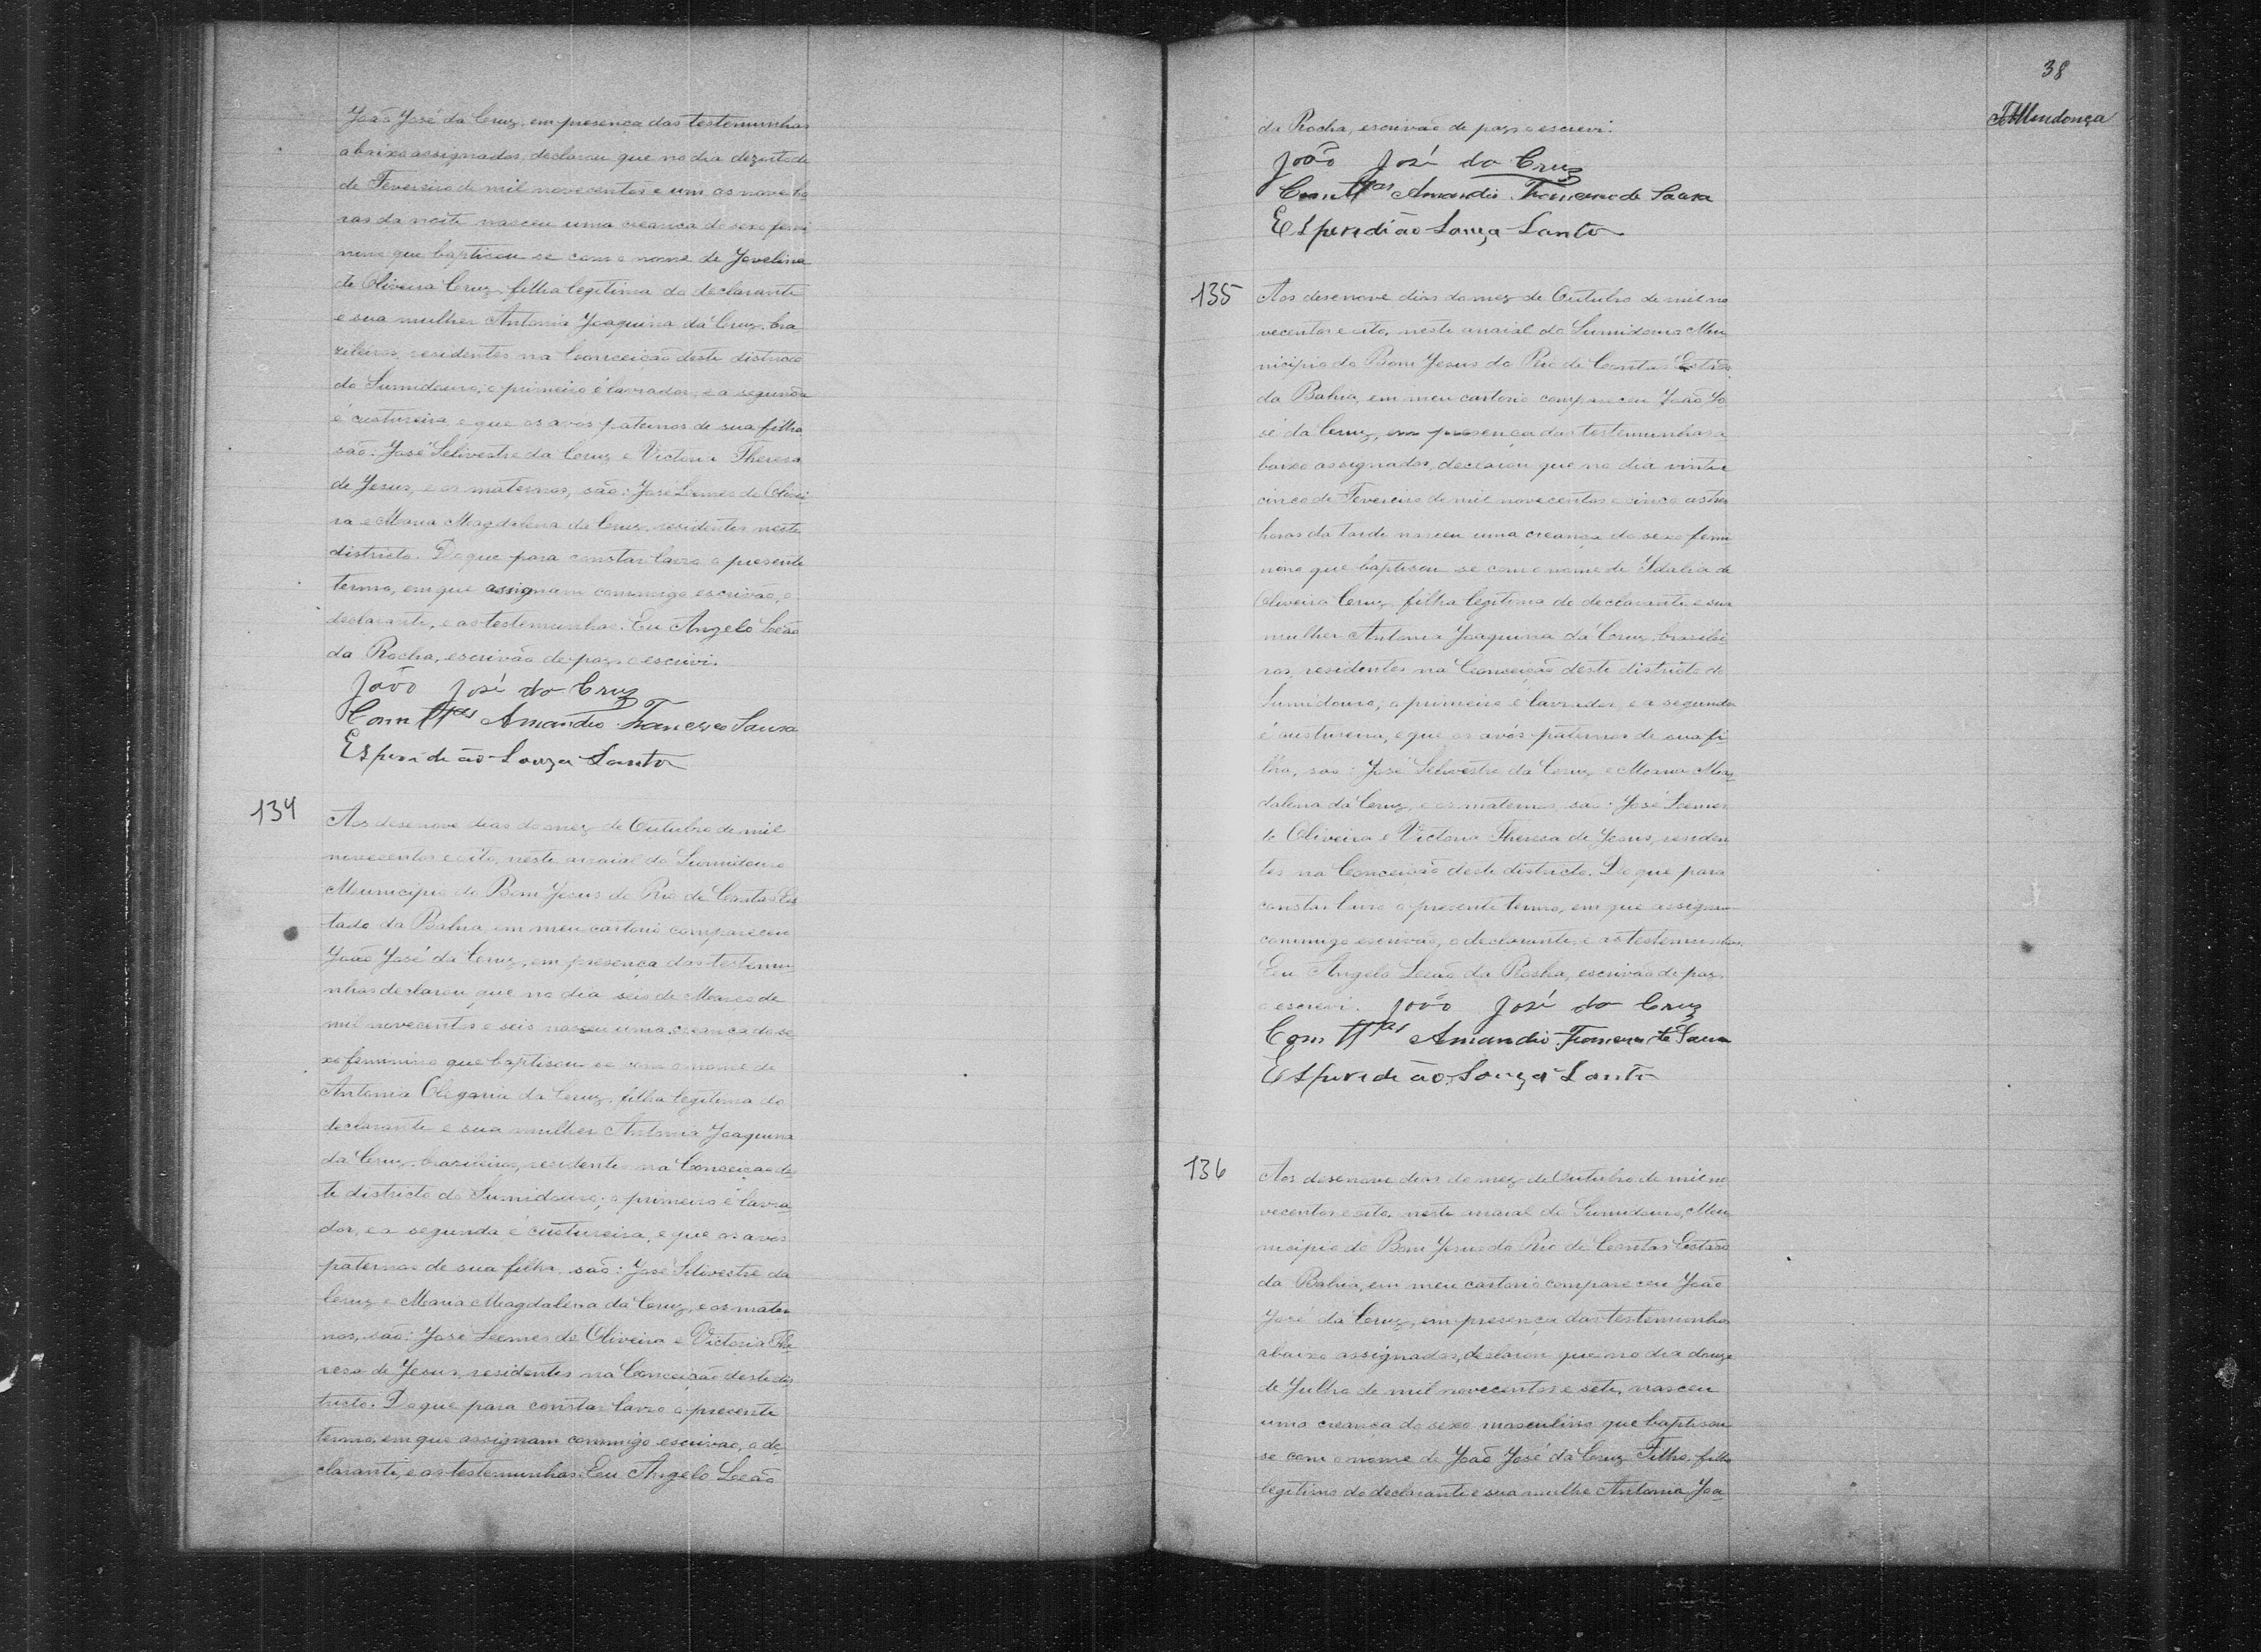 João José da Cruz, em presença das testemunhas
abaixo assignadas, declarou que no dia dezoito de
de Fevereiro de mil novecentos e um as nove ho
ras da noite nasceu uma creança do sexo femi
nino que baptisou se com o nome de Jovelina
de Oliveira Cruz, filha legitima do declarante
e sua mulher Antonia Joaquina da Cruz, bra
zileiros, residentes na Conceição deste districto
do Sumidouro, o primeiro é lavrador, e a segunda
é custureira, e que os avós paternos de sua filha
são: José Selivestre da Cruz e Victoria Theresa
de Jesus, e os maternos, são: José Lemes de Olivei
ra e Maria Magdalena da Cruz, residentes neste
districto. Do que para constar lavro o presente
termo, em que assignam commigo escrivão, o
declarante, e as testemunhas. Eu Angelo Leão
da Rocha, escrivão de paz o escrivi.
João José da Cruz
Com ttas Amandio Francisco Sousa
Esperidião Souza Santo
134
Aos desenove dias do mez de Outubro de mil
novecentos e oito, neste arraial do Sumidouro
Municipio do Bom Jesus do Rio de Contas Es
tado da Bahia, em meu cartorio compareceu
João José da Cruz, em presença das testemu
nhas declarou que no dia seis de Março de
mil novecentos e seis nasceu uma creança do se
xo feminino que baptisou se com o nome de
Antonia Olegaria da Cruz, filha legitima do
declarante e sua mulher Antonia Joaquina
da Cruz, brazileiros, residentes na Conceição des
te districto do Sumidouro; o primeiro é lavra
dor, e a segunda é custureira, e que os avós
paternos de sua filha são: José Selivestre da
Cruz e Maria Magdalena da Cruz, e os mater
nos, são: José Leemes de Oliveira e Victoria The
resa de Jesus, residentes na Conceição deste dis
tricto. Do que para constar lavro o presente
termo, em que assignam commigo escrivão, o de
clarante, e as testemunhas. Eu Angelo Leeão
38
da Rocha, escrivão de paz o escrevi.
João José da Cruz
Com ttas Amandio Francisco de Sousa
Esperidião Souza Santo
135
Aos desenove dias do mez de Outubro de mil no
vecentos e oito, neste arraial do Sumidouro Mu
nicipio do Bom Jesus do Rio de Contas Estado
da Bahia, em meu cartorio compareceu João Jo
sé da Cruz, em presença das testemunhas a
baixo assignadas, declarou que no dia vinte e
cinco de Fevereiro de mil novecentos e cinco as tres
horas da tarde nasceu uma creança do sexo femi
nino que baptisou se com o nome de Idalia de
Oliveira Cruz, filha legitima do declarante e sua
mulher Antonia Joaquina da Cruz, brasilei
ros, residentes na Conceição deste districto do
Sumidouro; o primeiro é lavrador, e a segunda
é custureira, e que os avós paternos de sua fi
lha, são: José Selivestre da Cruz e Maria Mag
dalena da Cruz, e os maternos, são: José Leemes
de Oliveira e Victoria Theresa de Jesus, residen
tes na Conceição deste districto. Do que para
constar lavro o presente termo, em que assignam
commigo escrivão, o declarante, e as testemunhas.
Eu Angelo Leeão da Rocha, escrivão de paz,
o escrevi. João José da Cruz
Com ttas Amandio Francisco de Sousa
Esperidião Souza Santo
136
Aos desenove dias do mez de Outubro de mil no
vecentos e oito, neste arraial do Sumidouro, Mu
nicipio do Bom Jesus do Rio de Contas Estado
da Bahia, em meu cartorio compareceu João
José da Cruz, em presença das testemunhas
abaixo assignadas, declarou que no dia douze
de Julho de mil novecentos e sete, nasceu
uma creança do sexo masculino que baptisou
se com o nome de João José da Cruz Filho, filho
legitimo do declarante e sua mulhe Antonia Joa